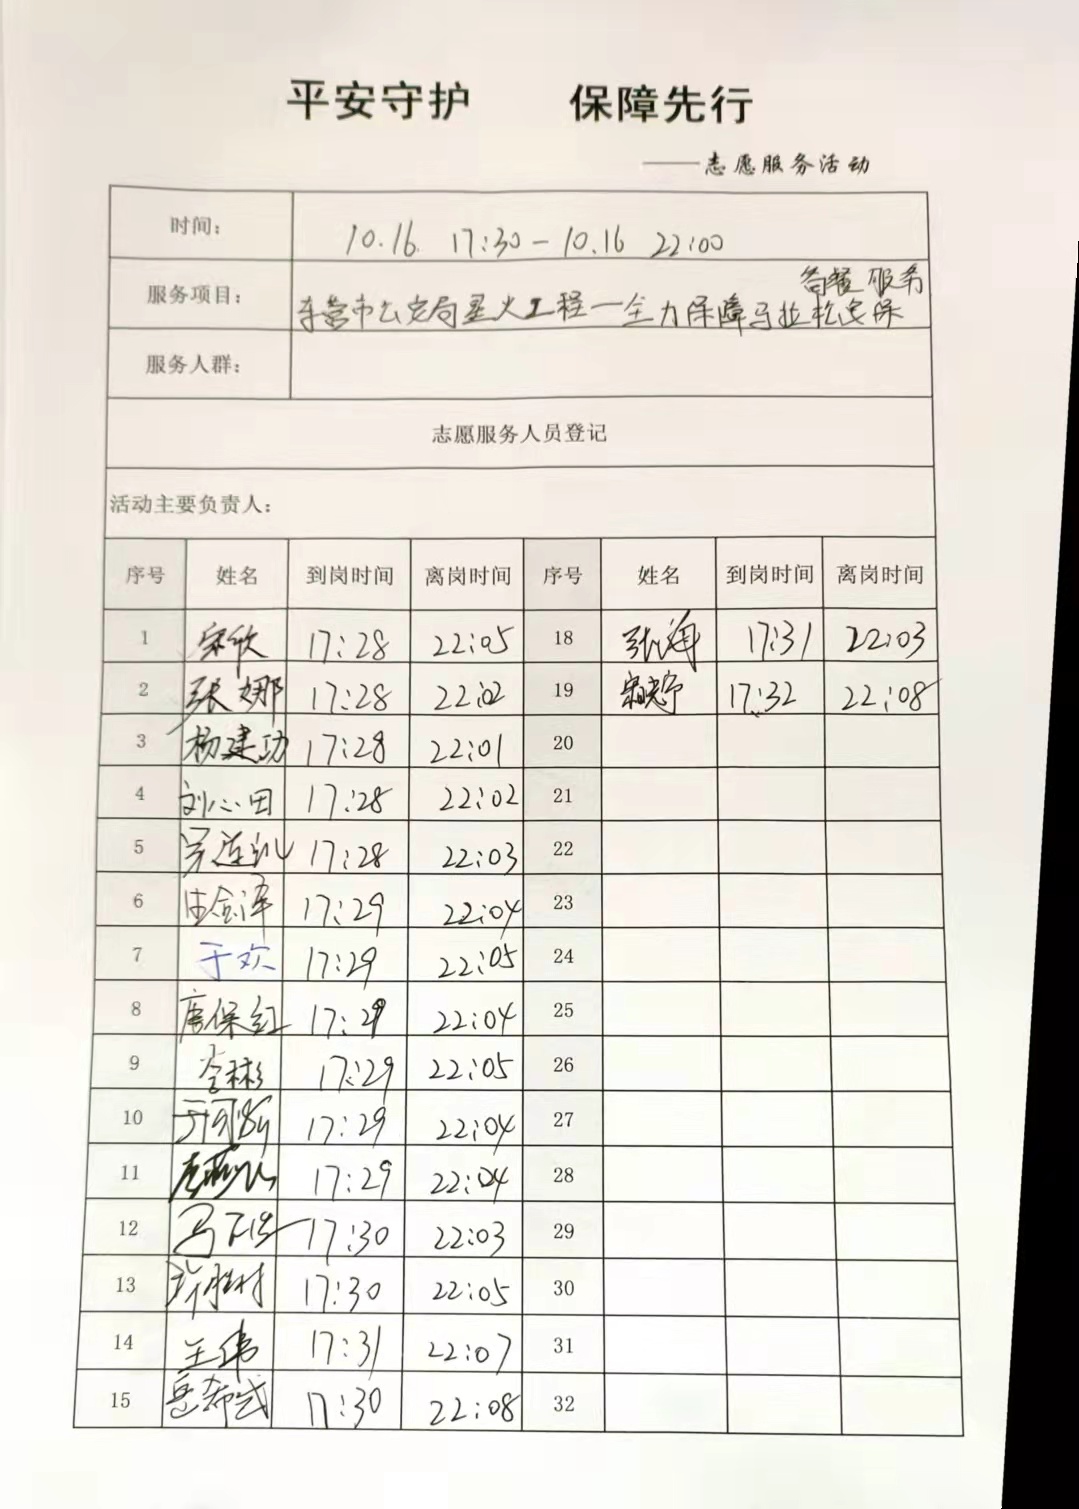 平安守护 保障先行
——志愿服务活动
时间： 10.16 17:30-10.16 22:00
服务项目： 东营市公安局星火工程一全力保障马拉松安保
备餐 服务
服务人群：
志愿服务人员登记
活动主要负责人：
序号 姓名 到岗时间 离岗时间 序号 姓名 到岗时间 离岗时间
1 宋欣 17:28 22:05 18 张海 17:31 22:03
2 张娜 17:28 22:02 19 17:32 22:08
3 杨建功 17:28 22:01 20
4 刘心田 17:28 22:02 21
5 17:28 22:03 22
6 17:29 22:04 23
7 于欢 17:29 22:05 24
8 唐保红 17:29 22:04 25
9 李彬 17:29 22:05 26
10 17:29 22:04 27
11 17:29 22:04 28
12 17:30 22:03 29
13 17:30 22:05 30
14 王伟 17:31 22:07 31
15 17:30 22:08 32